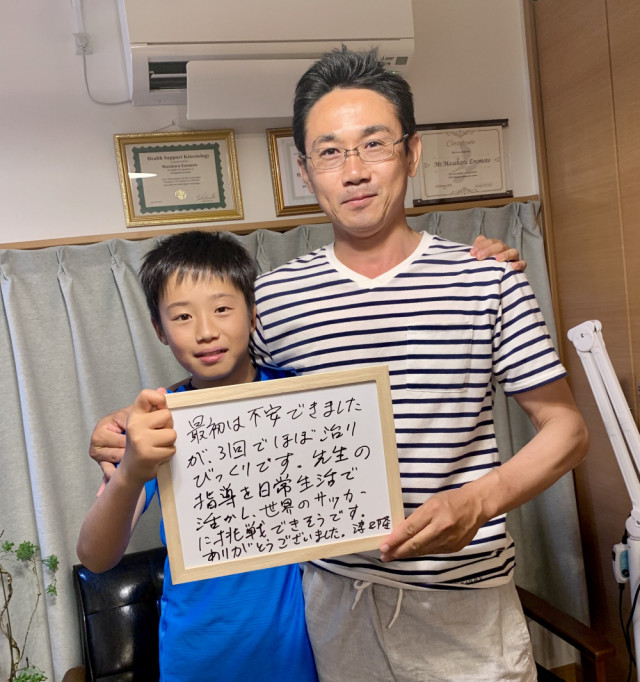 Health Support Kinesiology
Masaharu Enomoto
Certificate
Mr. Masaharu Enomoto
最初は不安できました
が、3回でほぼ治り
びっくりです。先生の
指導を日常生活で
活かし、世界のサッカー
に挑戦できそうです。
ありがとうございました。